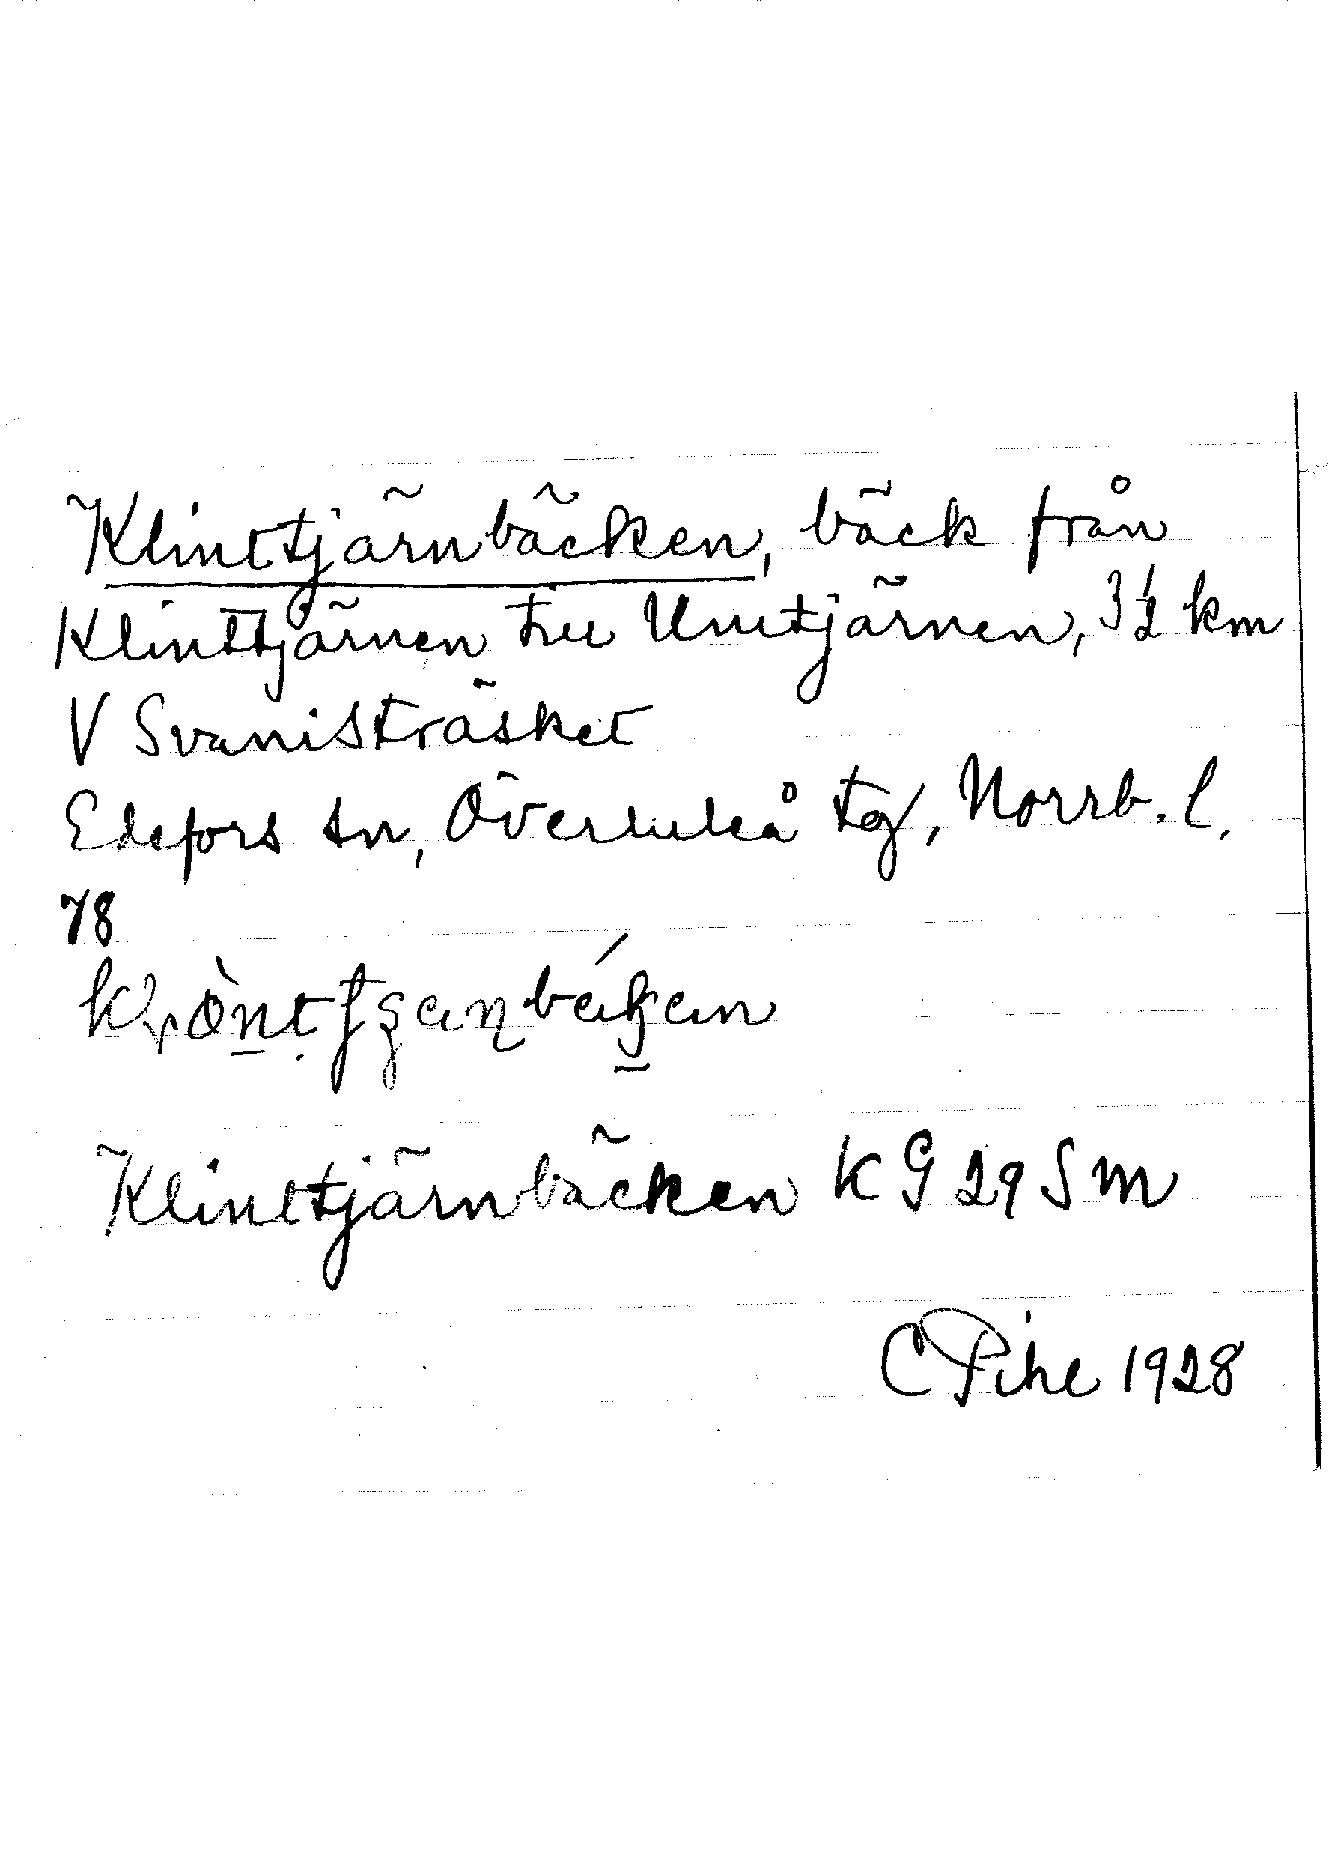 Klinttjärnbäcken, bäck från
Klinttjärnen till Unntjärnen, 3½ km
V Svanisträsket
Edefors sn, Överluleå tg, Norrb. l.
78
Klinttjärnbäcken KG 29 Sm
C Pihl 1928